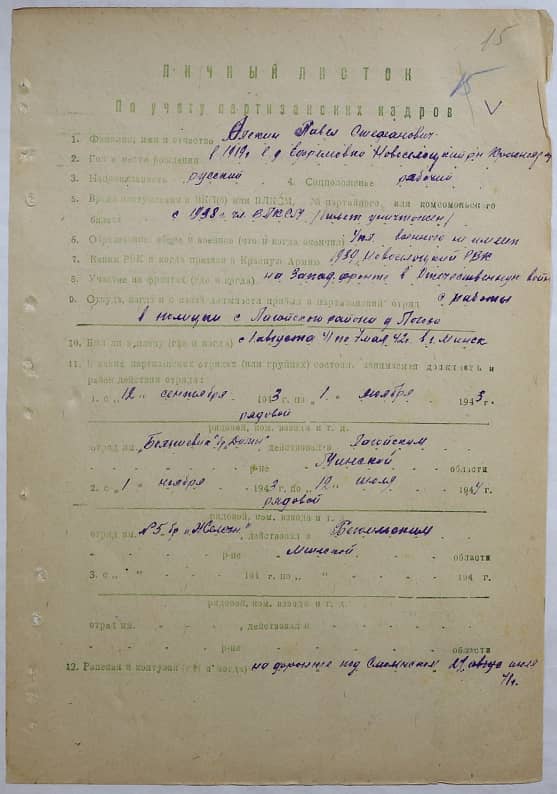 15
15
ЛИЧНЫЙ ЛИСТОК
По учету партизанских кадров
1. Фамилия, имя и отчество Павел Стефанович
2. Год и место рождения в 1919г. в д. Ефремовка Новоселецкий р-н Красноярск
3. Национальность русский 4. Соцположение рабочий
5. Время вступления в ВКП(б) или ВЛКСМ, № партийного, или комсомольского
билета с 1938г. чл. ВЛКСМ (билет уничтожен)
6. Образование общее и военное (что и когда окончил) 4 кл. военного не имеет
7. Каким РВК и когда призван в Красную Армию 1939 Новоселецкий РВК
8. Участие на фронтах (где и когда) на Запад. фронте в Отечественную войну
9. Откуда, когда и с какой должности прибыл в партизанский отряд с работы
в полиции с Лагойского района д.
10. Был ли в плену (где и когда) с 1 августа 41 по 7 мая 42г. в г. Минск
11. В каких партизанских отрядах (или группах) состоял, занимаемая должность и
район действия отряда:
1. с „12„ сентября 1943 г. по „1„ ноября 1943 г.
рядовой
рядовой, ком. взвода и т. д.
отряд им. „Большевик" бр. действовал в Лагойским
р-не Минской области
2. с „1„ ноября 1943 г. по „12„ июля 1944 г.
рядовой
рядовой, ком. взвода и т. д.
отряд им. №5 бр „Железн.", действовал в Бегомльским
р-не Минской области
3. с „ „ 194 г. по „ „ 194 г.
рядовой, ком. взвода и т. д.
отряд им. , действовал в
р-не области
12. Ранения и контузии (где и когда) на фронте под Смоленском 27 июля
41г.